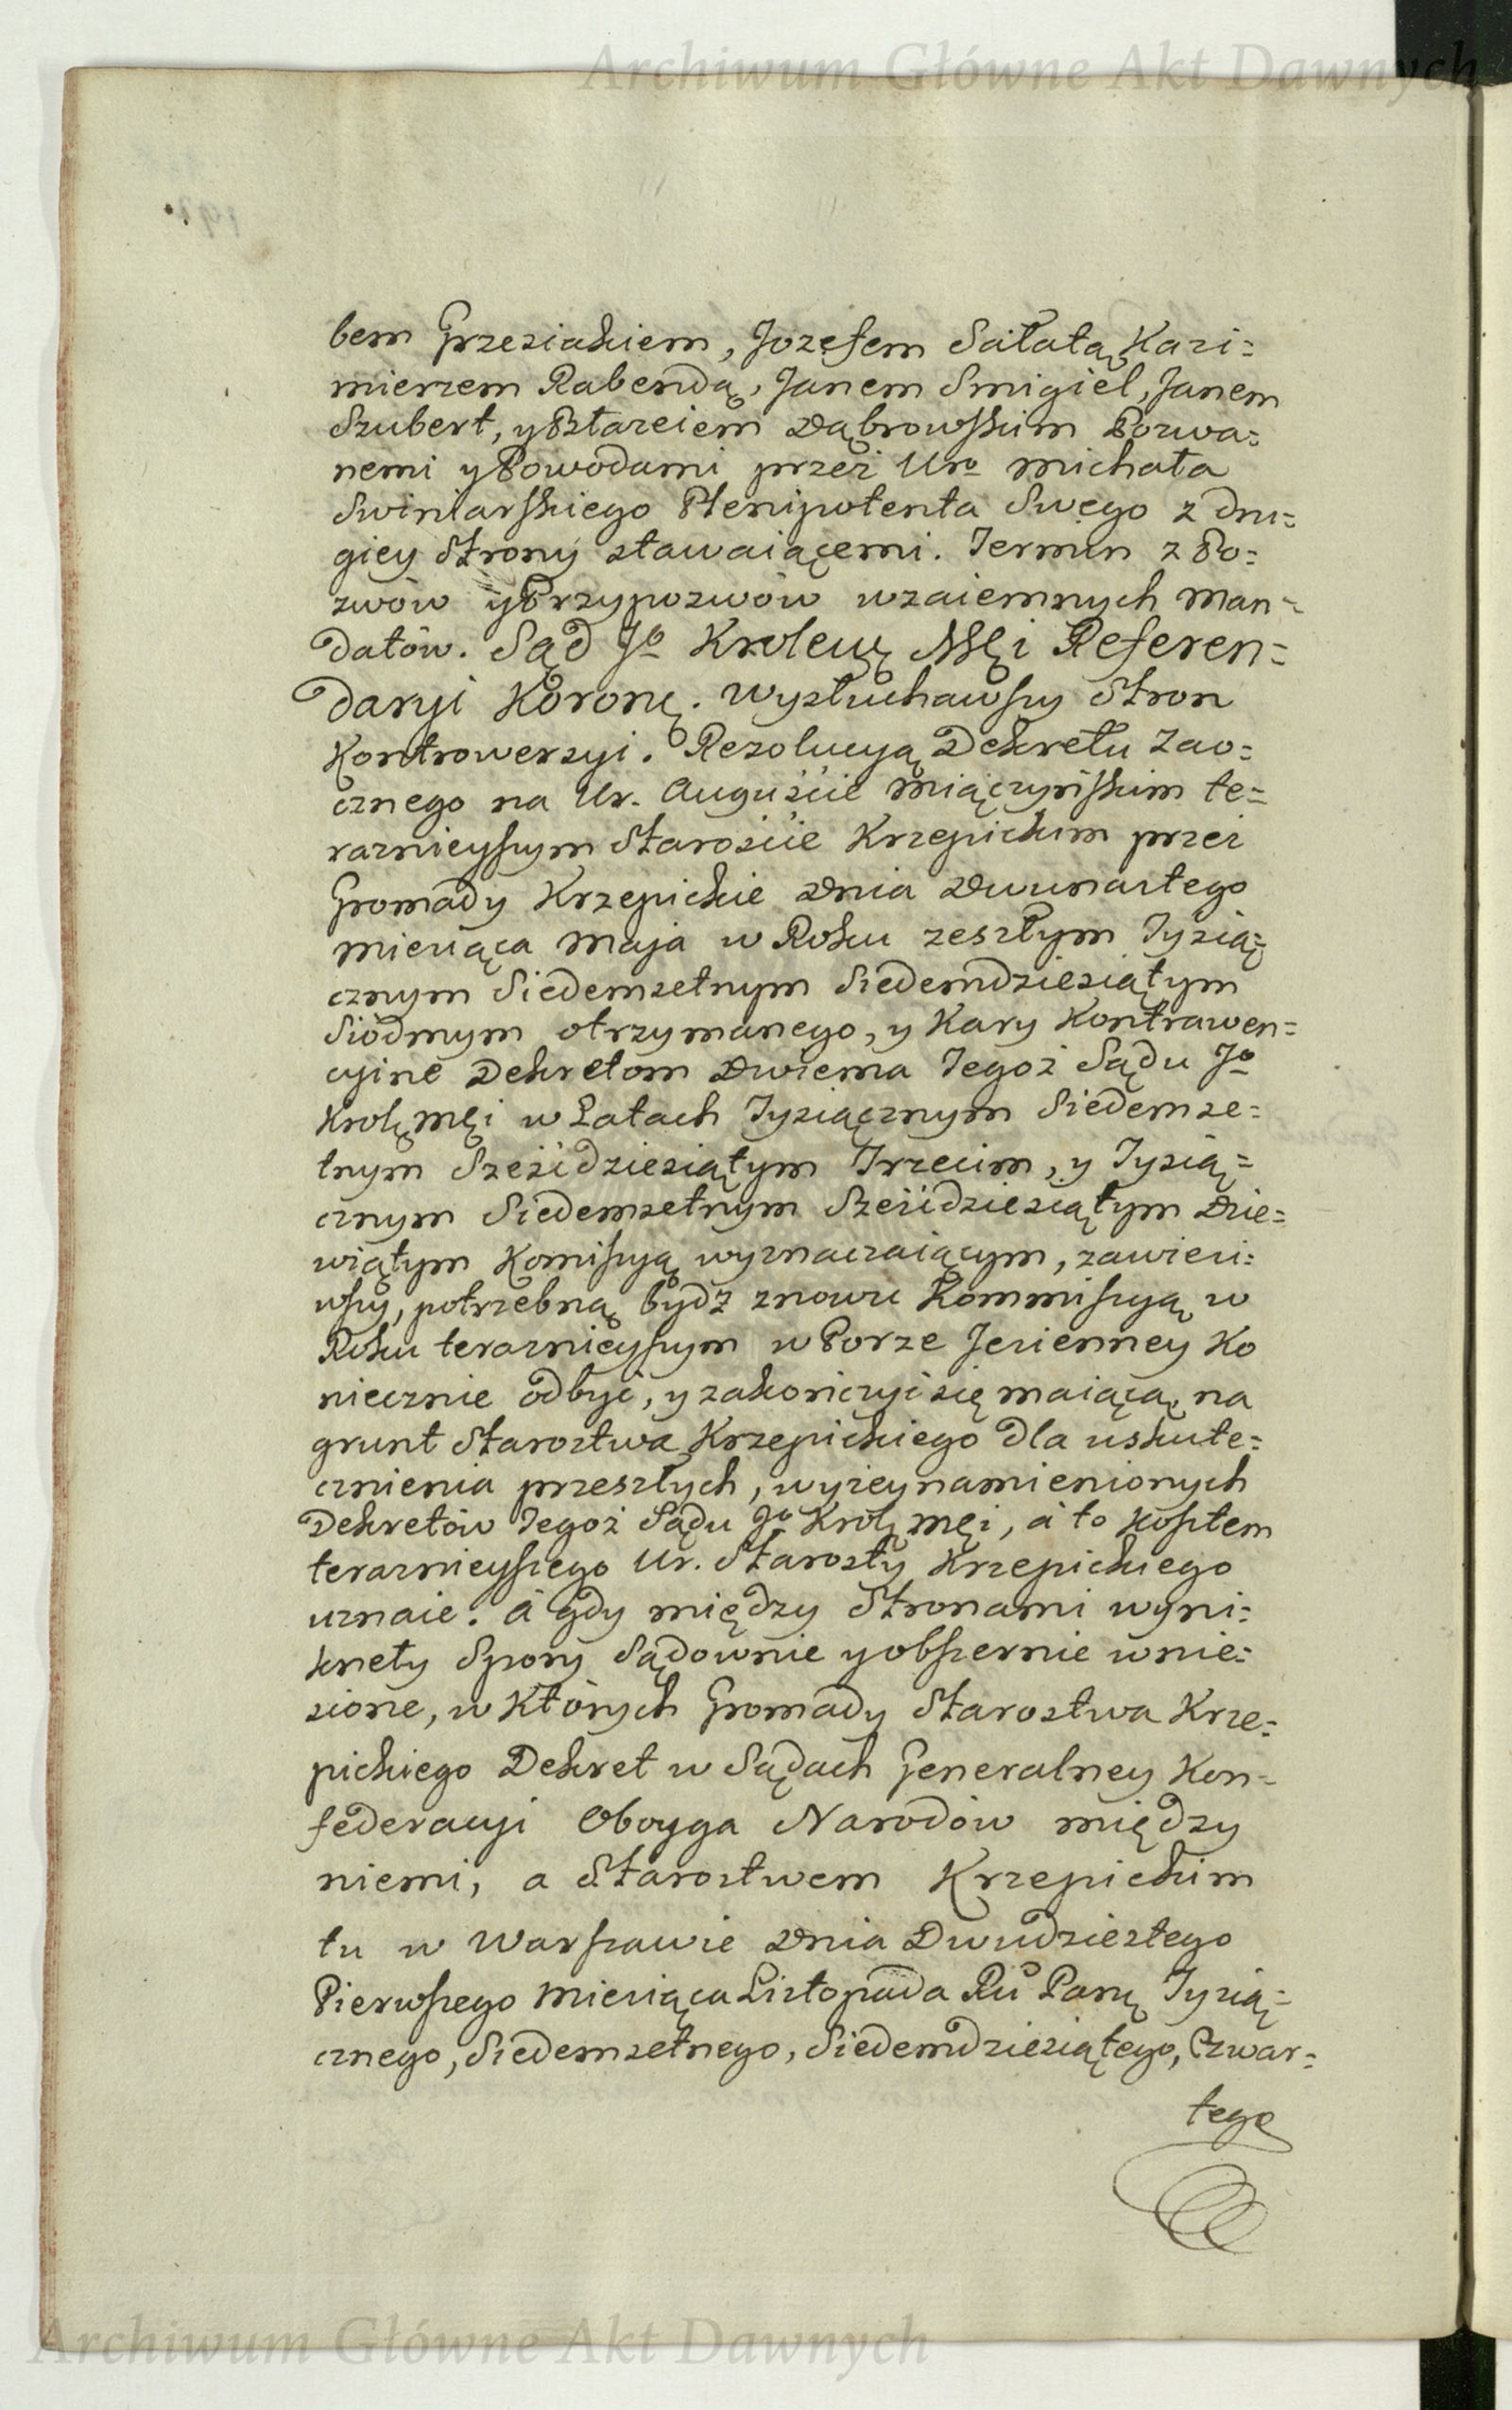 Archiwum Główne Akt Dawnych
bem Grzesiakiem, Jozefem Sałatą, Kazi=
mierzem Rabendą, Janem Smigiel, Janem
Szubert, y Błażeiem Dąbrowskim Pozwa=
nemi y Powodami przez Uro Michała
Swiniarskiego Plenipotenta Swego z dru=
giey Strony stawaiącemi. Termin z Po=
zwów y Przypozwów wzaiemnych Man=
datów. Sąd Jo Krolewę Mći Referen=
daryi Koronę. Wysłuchawszy Stron
Kontrowersyi. Rezolucyą Dekretu Zao=
cznego na Ur. Auguście Miączyńskim te=
raznieyszym Staroście Krzepickim przez
Gromady Krzepickie Dnia Dwunastego
Miesiąca Maja w Roku zeszłym Tysią=
cznym Siedemsetnym Siedemdziesiątym
Siódmym otrzymanego, y Kary Kontrawen=
cyine Dekretom Dwiema Tegoż Sądu Jo
Krolę Mći w Latach Tysiącznym Siedemse=
tnym Sześćdziesiątym Trzecim, y Tysią=
cznym Siedemsetnym Sześćdziesiątym Dzie=
wiątym Komisyą wyznaczaiącym, zawiesi=
wszy, potrzebną bydź znowu Kommissyą w
Roku teraznieyszym w Porze Jesienney Ko
niecznie odbyć, y zakończyć się maiącą, na
grunt Starostwa Krzepickiego dla uskute=
cznienia przeszłych, wyżeynamienionych
Dekretów Tegoż Sądu Jo Krolę Mći, á to Kosztem
teraznieyszego Ur. Starosty Krzepickiego
uznaie. A gdy między Stronami wyni=
knęły Spory Sądownie y obszernie wnie=
sione, w Których Gromady Starostwa Krze=
pickiego Dekret w Sądach Generalney Kon=
federacyi Oboyga Narodów między
niemi, a Starostwem Krzepickim
tu w Warszawie Dnia Dwudziestego
Pierwszego Miesiąca Listopada Ru Panę Tysią=
cznego, Siedemsetnego, Siedemdziesiątego, Czwar=
tego
Archiwum Główne Akt Dawnych